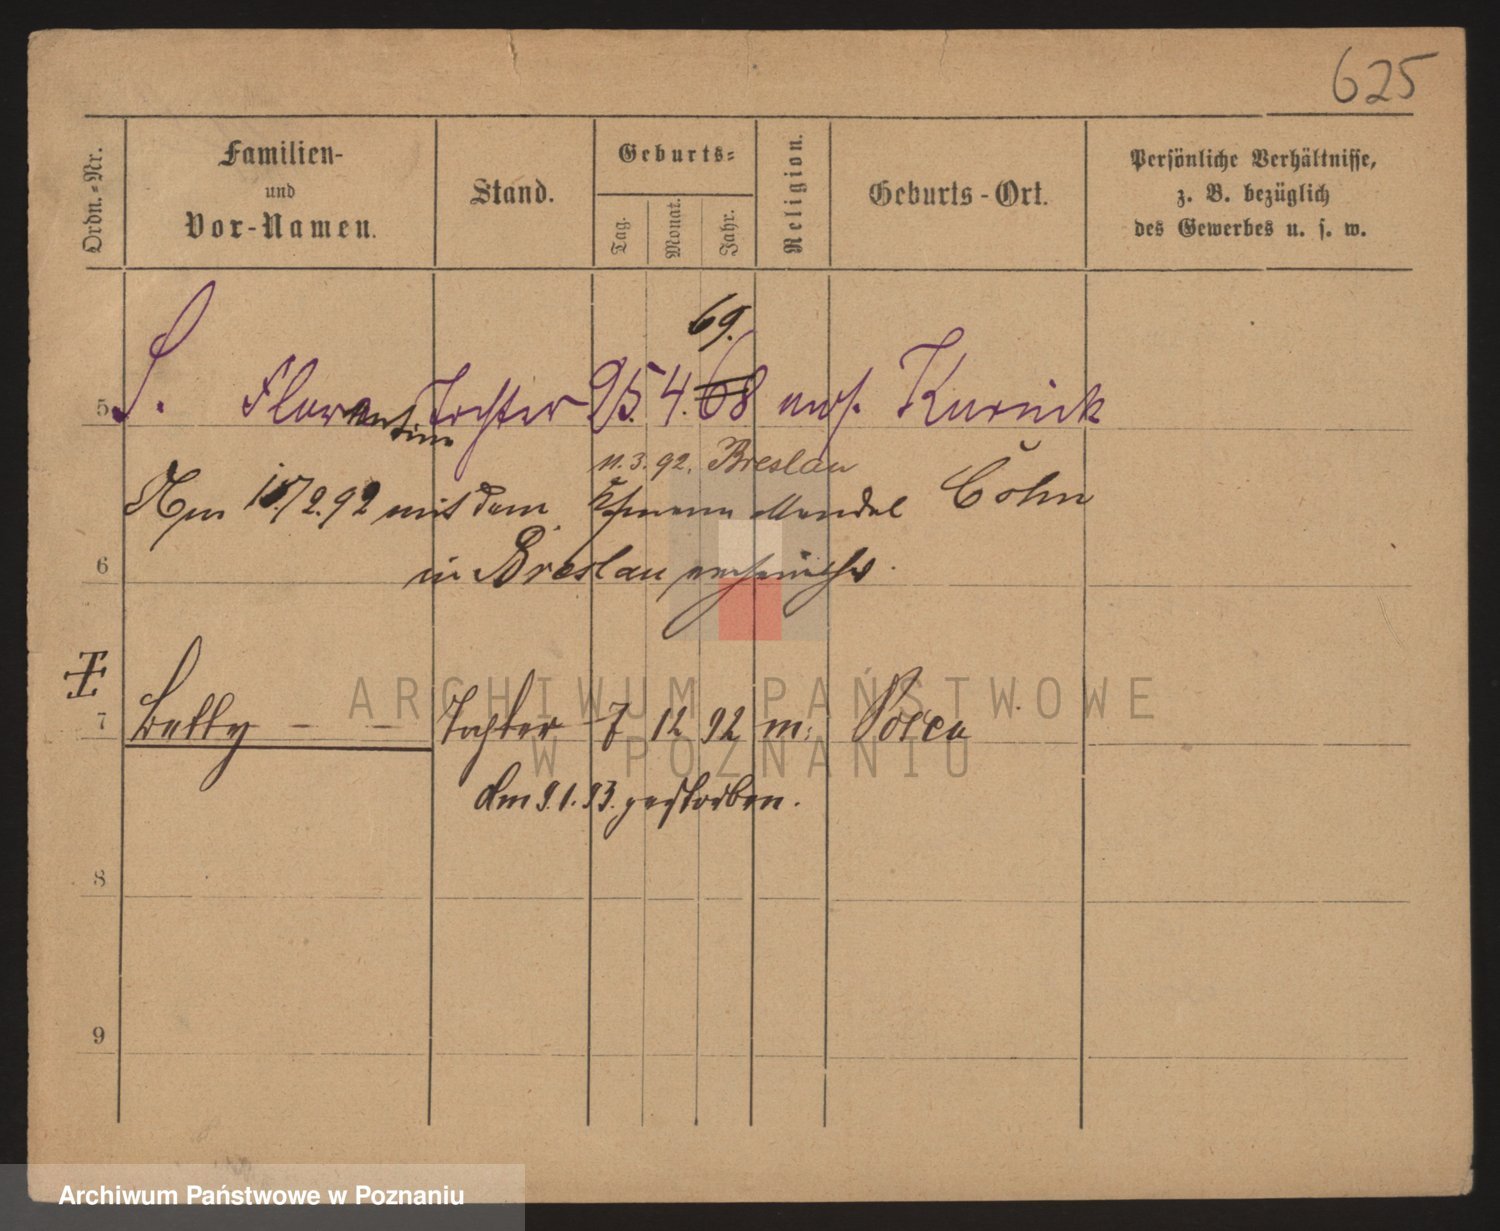 625
Ordn.-Nr.
Familien-
und
Vor-Namen.
Stand.
Geburts-
Tag.
Monat.
Jahr.
Religion.
Geburts-Ort.
Persönliche Verhältnisse,
z. B. bezüglich
des Gewerbes u. s. w.
69.
5 S. Florentine Tochter 25. 4. 68 mos. Kurnick
11.3.92. Breslau
Am 2.92 mit dem Kfmann Mendel Cohn
6 in Breslau verheirathet.
7 Betty - - Tochter 7 12 92 m: Posen
Am 9.1.93. gestorben.
8
9
ARCHIWUM PAŃSTWOWE
W POZNANIU
Archiwum Państwowe w Poznaniu